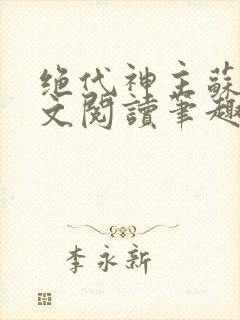 绝代神主蘇
文閱讀筆趣
李永新